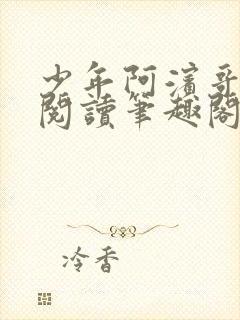 少年阿濱哥
閱讀筆趣閣
冷香